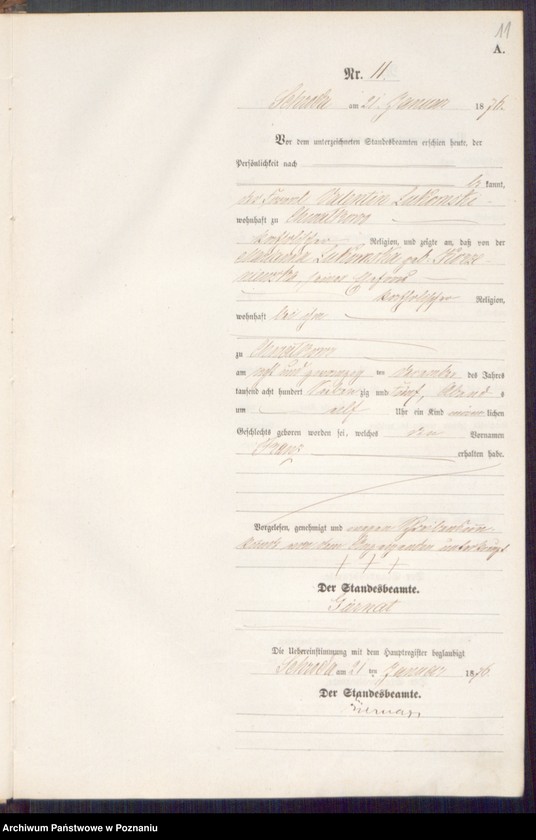 11
A.
Nr. 11.
Schroda am 21. Januar 1876.
Vor dem unterzeichneten Standesbeamten erschien heute, der
Persönlichkeit nach
be kannt,
der Valentin Lukomski
wohnhaft zu
katholischer Religion, und zeigte an, daß von der
Lukomska geb.
seiner Ehefrau
katholischer Religion,
wohnhaft bei ihm
zu
am acht und zwanzig ten December des Jahres
tausend acht hundert sieben zig und fünf, Abend s
um elf Uhr ein Kind männ lichen
Geschlechts geboren worden sei, welches den Vornamen
Franz erhalten habe.
Vorgelesen, genehmigt und wegen Schreibens
von dem
+ + +
Der Standesbeamte.
Die Uebereinstimmung mit dem Hauptregister beglaubigt
Schroda am 21 ten Januar 1876.
Der Standesbeamte.
Archiwum Państwowe w Poznaniu